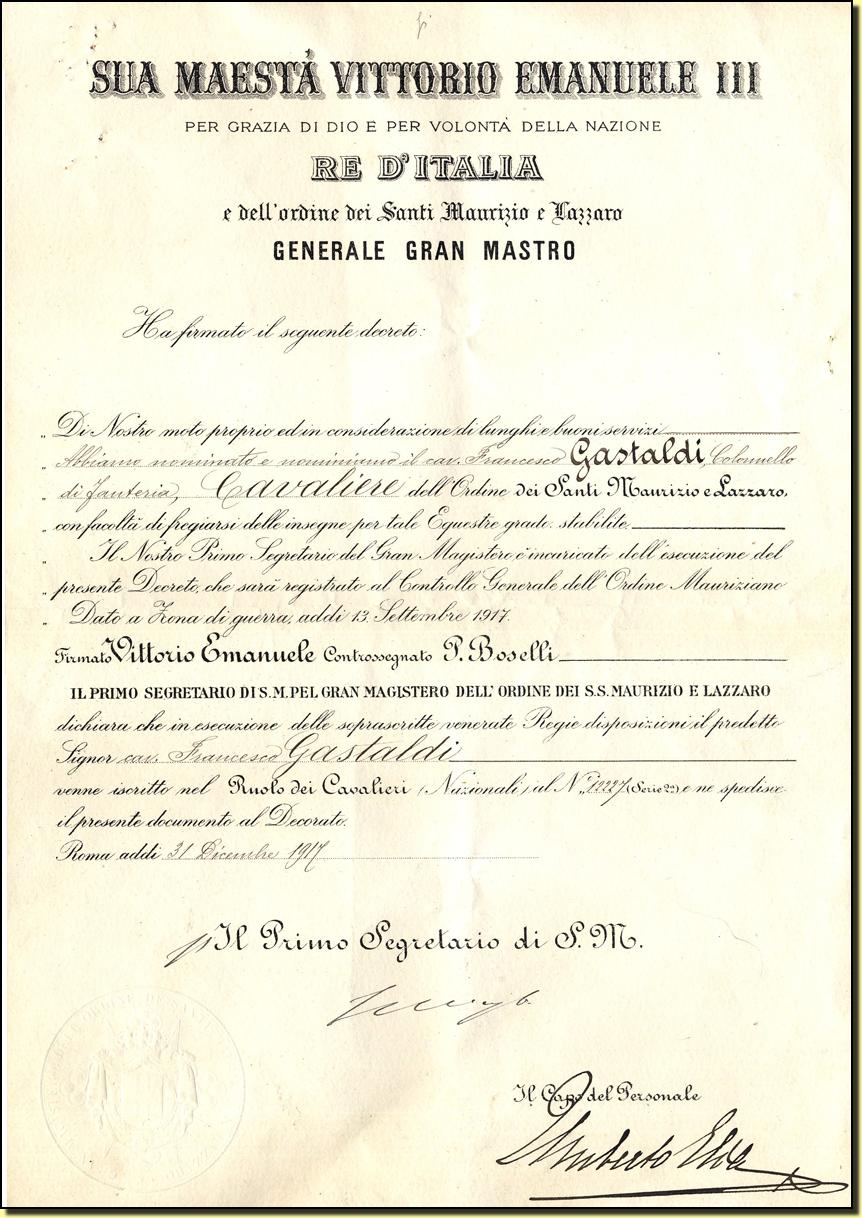 SUA MAESTÀ VITTORIO EMANUELE III
PER GRAZIA DI DIO E PER VOLONTÀ DELLA NAZIONE
RE D'ITALIA
e dell'ordine dei Santi Maurizio e Lazzaro
GENERALE GRAN MASTRO
Ha firmato il seguente decreto:
„ Di Nostro moto proprio ed in considerazione di lunghi e buoni servizi
„ Abbiamo nominato e nominiamo il cav. Francesco Gastaldi, Colonnello
„ di fanteria, Cavaliere dell'Ordine dei Santi Maurizio e Lazzaro,
„ con facoltà di fregiarsi delle insegne per tale Equestre grado stabilite.
„ Il Nostro Primo Segretario del Gran Magistero è incaricato dell'esecuzione del
„ presente Decreto, che sarà registrato al Controllo Generale dell'Ordine Mauriziano
„ Dato a Zona di guerra, addì 13 Settembre 1917.
Firmato Vittorio Emanuele Controssegnato P. Boselli
IL PRIMO SEGRETARIO DI S. M. PEL GRAN MAGISTERO DELL'ORDINE DEI S.S. MAURIZIO E LAZZARO
dichiara che in esecuzione delle soprascritte venerate Regie disposizioni il predetto
Signor cav. Francesco Gastaldi
venne iscritto nel Ruolo dei Cavalieri (Nazionali) al N° 12227 (Serie 2ª) e ne spedisce
il presente documento al Decorato.
Roma addì 31 Dicembre 1917
p Il Primo Segretario di S. M.
Il Capo del Personale
Umberto